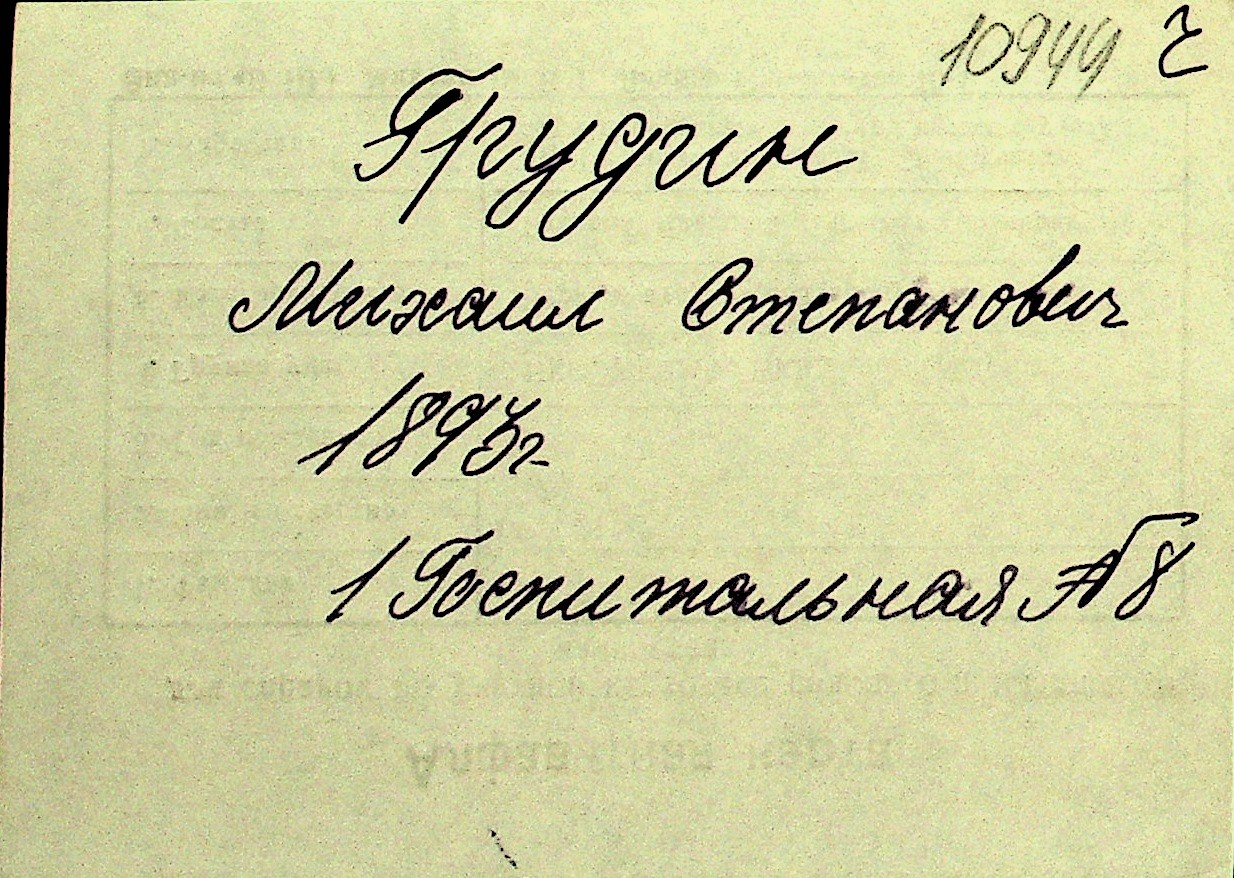 10944 г
Грудин
Михаил Степанович
1893г
1 Госпитальная №8